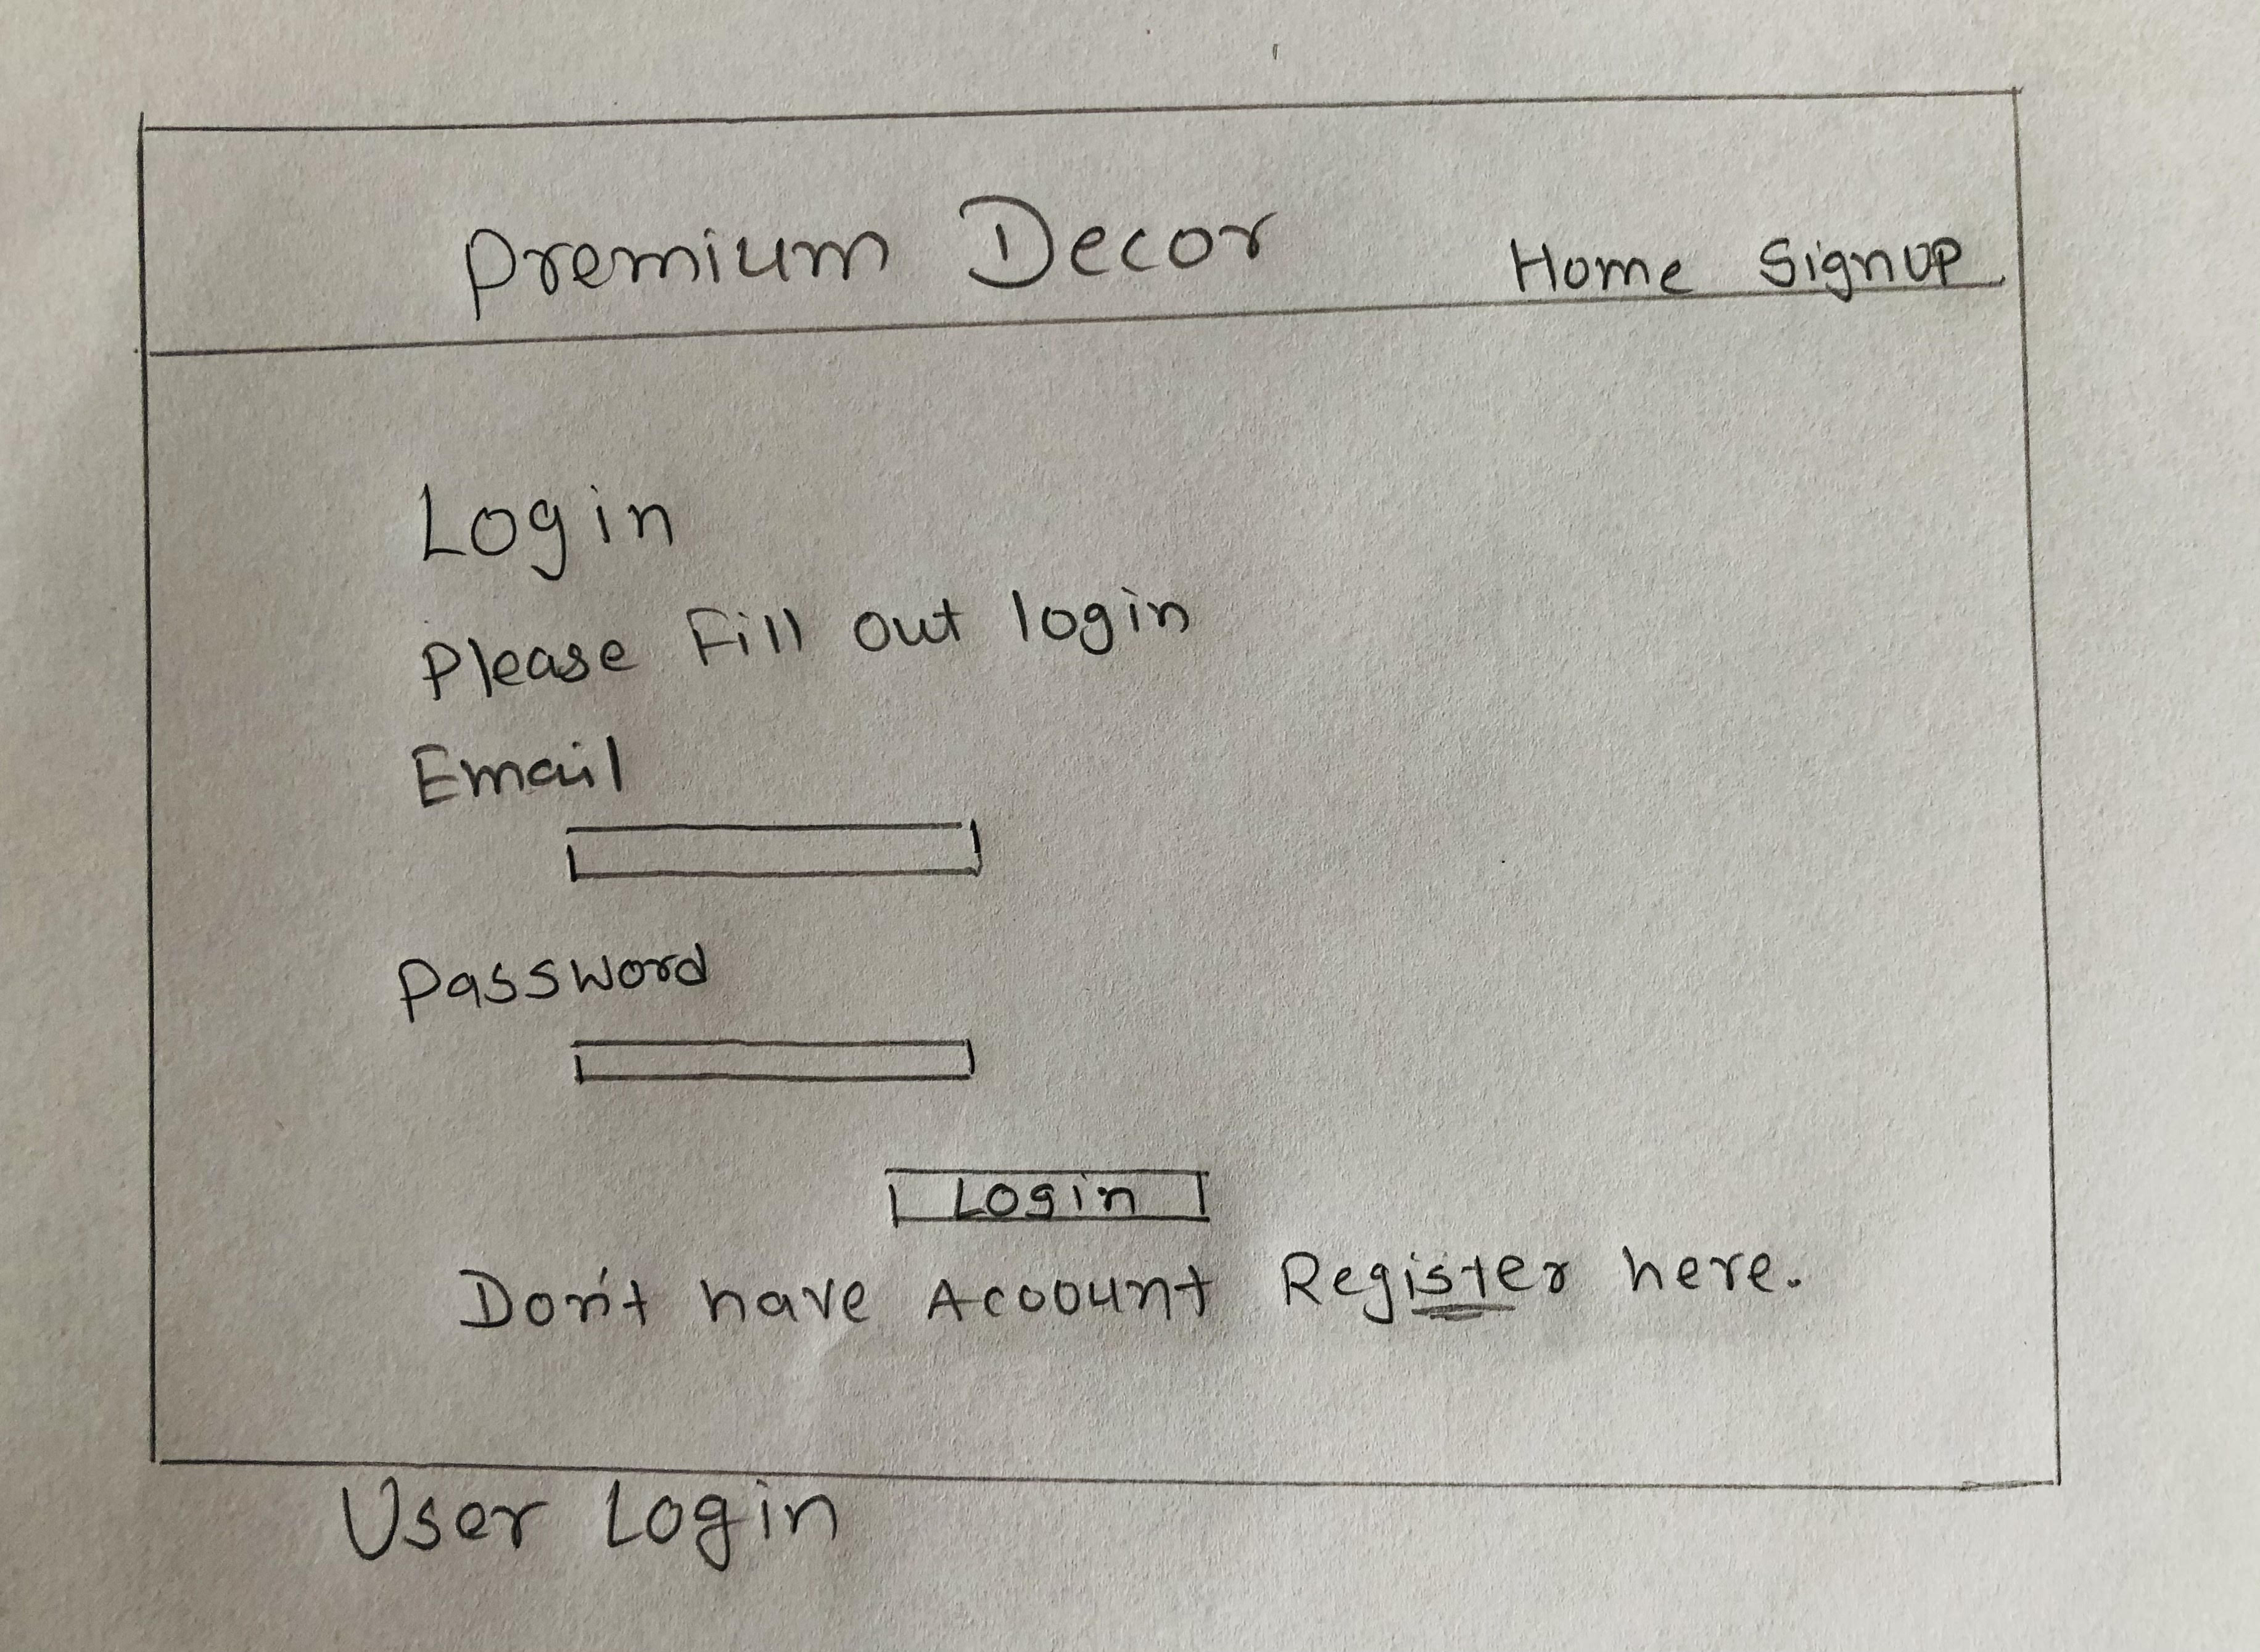 Premium Decor Home Signup
Login
Please Fill out login
Email
Password
Login
Don't have Acoount Register here.
User Login